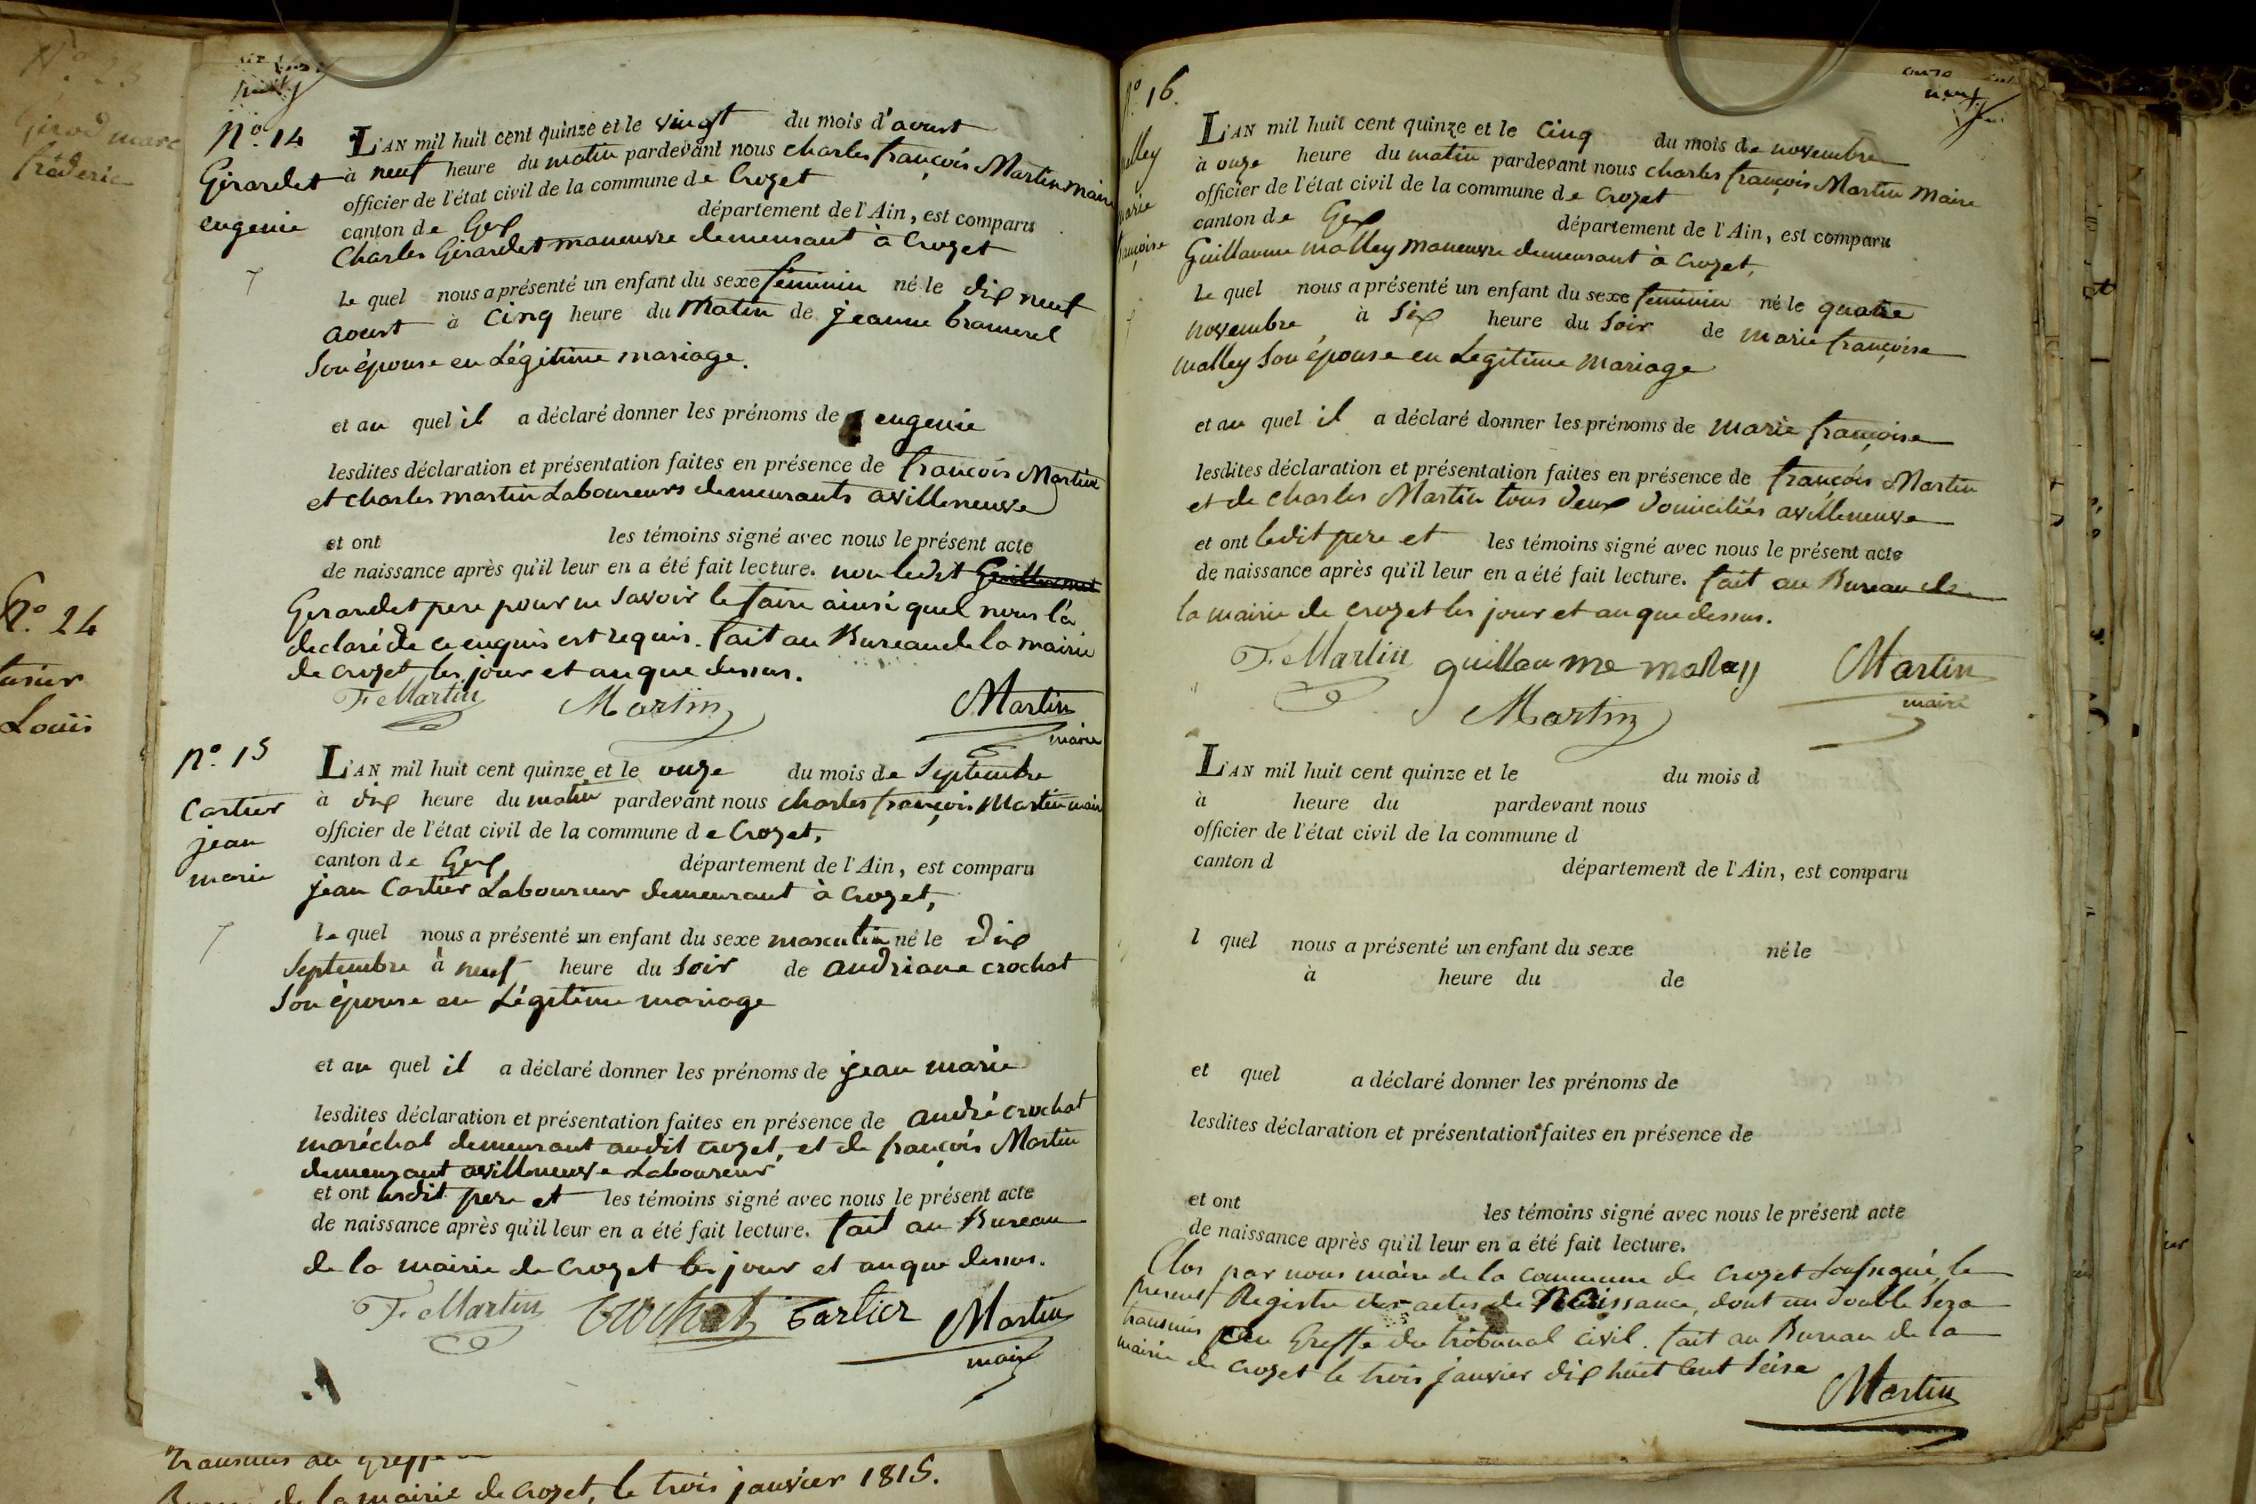 N.o 23
Girod marc
fréderic
N.o 24
Louis
huit
N.o 14
Girardet
eugenie
L'AN mil huit cent quinze et le vingt du mois d'aoust
à neuf heure du matin pardevant nous charles françois Martin maire
officier de l'état civil de la commune de Crozet
canton de Gex département de l'Ain, est comparu
Charles Girardet manœuvre demeurant à Crozet
le quel nous a présenté un enfant du sexe féminin né le dix neuf
aoust à cinq heure du matin de jeanne
son épouse en Légitime mariage.
et au quel il a déclaré donner les prénoms de eugenie
lesdites déclaration et présentation faites en présence de françois Martin
et charles martin Laboureurs demeurants avilleneuve
et ont les témoins signé avec nous le présent acte
de naissance après qu'il leur en a été fait lecture. non ledit
Gerardet pere pour ne savoir le faire ainsi quel nous l'a
declaré de ce enquis est requis. fait au Bureau de la mairie
de crozet les jour et an que dessus.
F. Martin Martin Martin
maire
N.o 15
Cartier
jean
marie
L'AN mil huit cent quinze et le onze du mois de Septembre
à dix heure du matin pardevant nous charles françois Martin mair
officier de l'état civil de la commune de Crozet,
canton de Gex département de l'Ain, est comparu
jean Cartier Laboureur demeurant à Crozet,
le quel nous a présenté un enfant du sexe masculin né le dix
Septembre à neuf heure du soir de andriane crochat
son épouse en Légitime mariage
et au quel il a déclaré donner les prénoms de jean marie
lesdites déclaration et présentation faites en présence de andré crochat
maréchal demeurant audit crozet, et de françois Martin
demeurant avilleneuve Laboureur
et ont ledit pere et les témoins signé avec nous le présent acte
de naissance après qu'il leur en a été fait lecture. fait au Bureau
de la mairie de Crozet les jour et an que dessus.
F. Martin Crochat Cartier Martin
maire
transmis au greffe
de la mairie de crozet, le trois janvier 1815.
N.o 16.
malley
marie
françoise
neuf
L'AN mil huit cent quinze et le cinq du mois de novembre
à onze heure du matin pardevant nous charles françois Martin Maire
officier de l'état civil de la commune de Crozet
canton de Gex département de l'Ain, est comparu
Guillaume malley manœuvre demeurant à Crozet,
le quel nous a présenté un enfant du sexe féminin né le quatre
novembre à six heure du soir de marie françoise
malley son épouse en Legitime mariage
et au quel il a déclaré donner les prénoms de marie françoise
lesdites déclaration et présentation faites en présence de françois Martin
et de charles Martin tous deux domiciliés avilleneuve
et ont ledit pere et les témoins signé avec nous le présent acte
de naissance après qu'il leur en a été fait lecture. fait au Bureau de
la mairie de crozet les jour et an que dessus.
F. Martin guillaume malley Martin
maire
Martin
L'AN mil huit cent quinze et le du mois d
à heure du pardevant nous
officier de l'état civil de la commune d
canton d département de l'Ain, est comparu
l quel nous a présenté un enfant du sexe né le
à heure du de
et quel a déclaré donner les prénoms de
lesdites déclaration et présentation faites en présence de
et ont les témoins signé avec nous le présent acte
de naissance après qu'il leur en a été fait lecture.
Clos par nous maire de la commune de Crozet soussigné, le
present Registre des actes de Naissance, dont un double sera
transmis au Greffe du tribunal civil. fait au Bureau de la
mairie de crozet le trois janvier dix huit cent seise
Martin